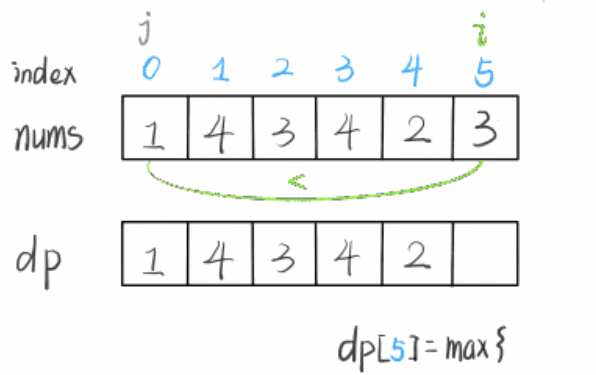 j i
index 0 1 2 3 4 5
nums 1 4 3 4 2 3
<
dp 1 4 3 4 2
dp[5]=max{